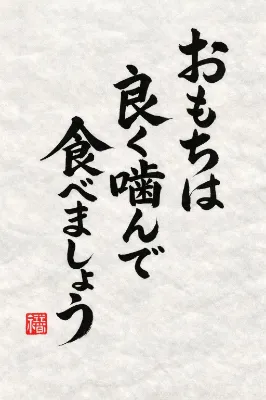 おもちは
良く噛んで
食べましょう